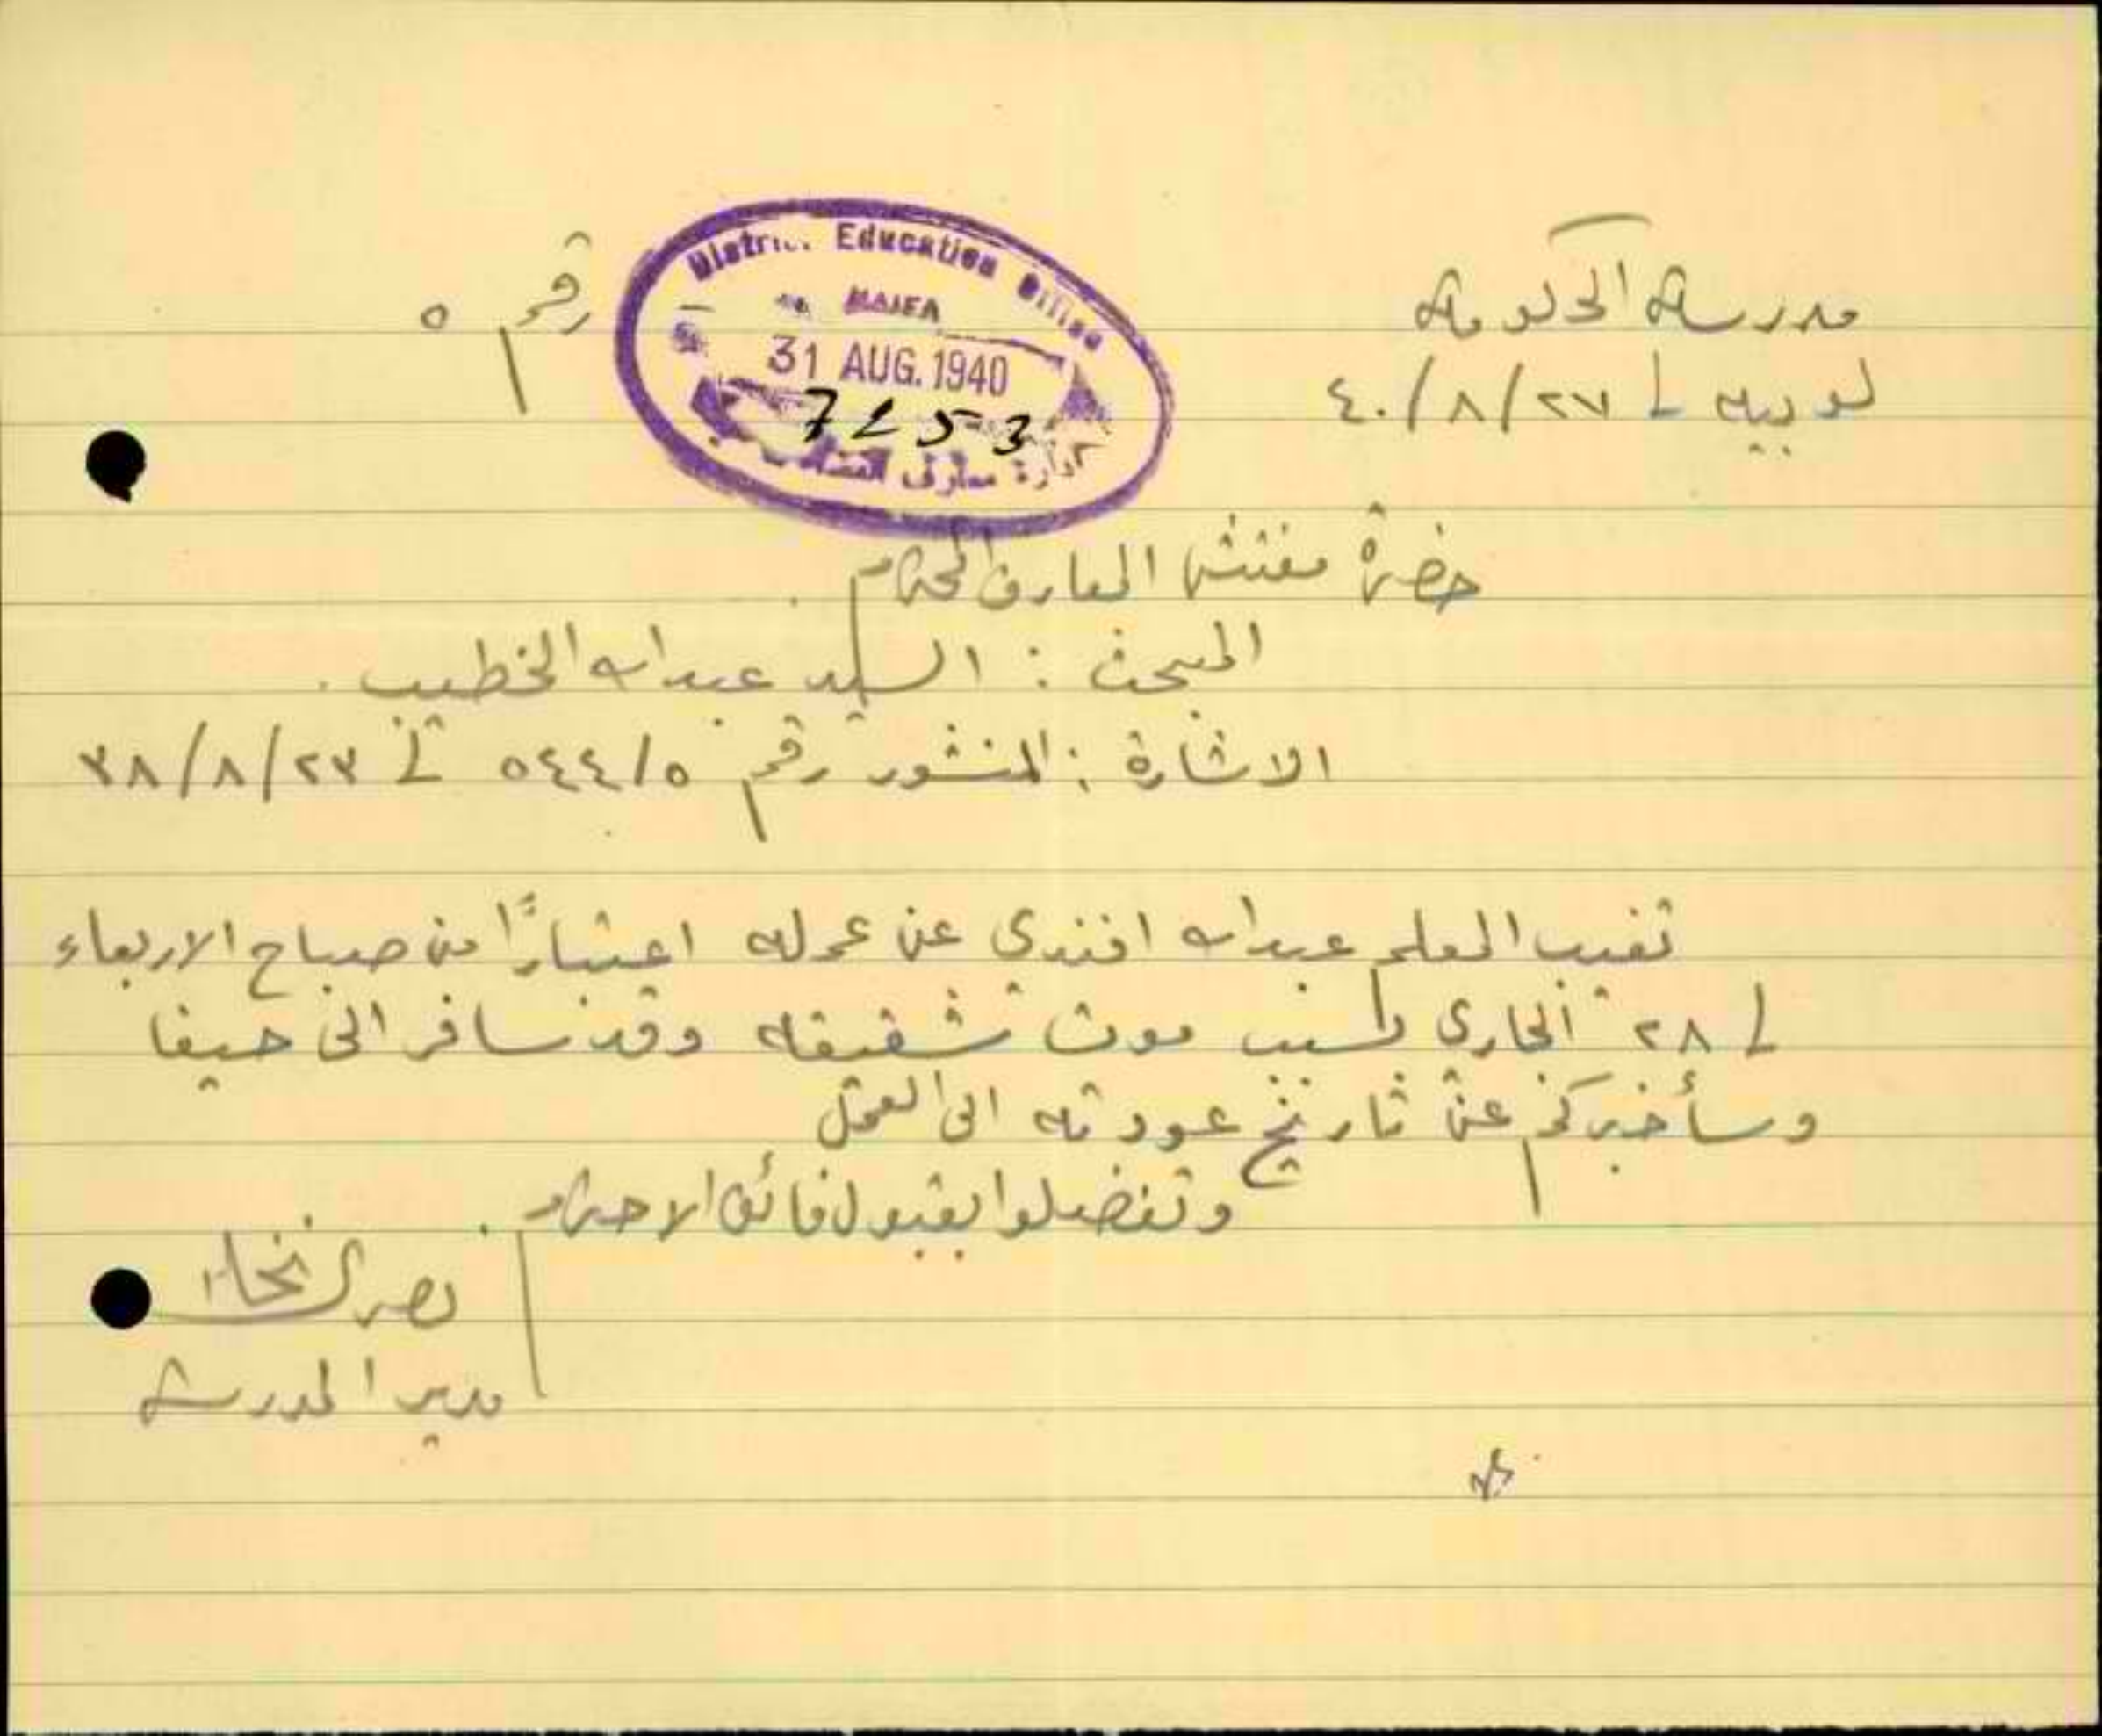 مدرسة الحكومة
رقم ٥
لوبيه في ٢٧/٨/٤٠
District Education Office
HAIFA
31 AUG. 1940
7253
ادارة معارف
حضرة مفتش المعارف المحترم .
المبحث : السيد عبد الله الخطيب .
الاشارة : المنشور رقم ٥٤٤/٥ في ٢٣/٨/٣٨
تغيب المعلم عبد الله افندي عن عمله اعتبارًا من صباح الاربعاء
في ٢٨ الجاري بسبب موت شقيقه وقد سافر الى حيفا
وسأخبركم عن تاريخ عودته الى العمل
وتفضلوا بقبول فائق الاحترام .
مدير المدرسة